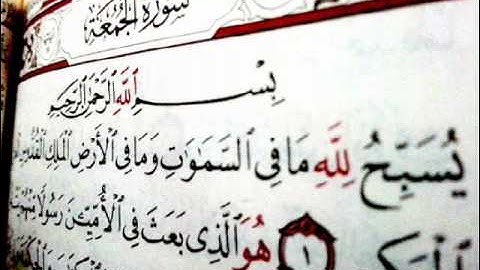 سورة الجمعة
بِسْمِ ٱللَّهِ ٱلرَّحْمَٰنِ ٱلرَّحِيمِ
يُسَبِّحُ لِلَّهِ مَا فِي ٱلسَّمَٰوَٰتِ وَمَا فِي ٱلْأَرْضِ ٱلْمَلِكِ ٱلْقُدُّوسِ
١ هُوَ ٱلَّذِي بَعَثَ فِي ٱلْأُمِّيِّۦنَ رَسُولًا مِّنْهُمْ